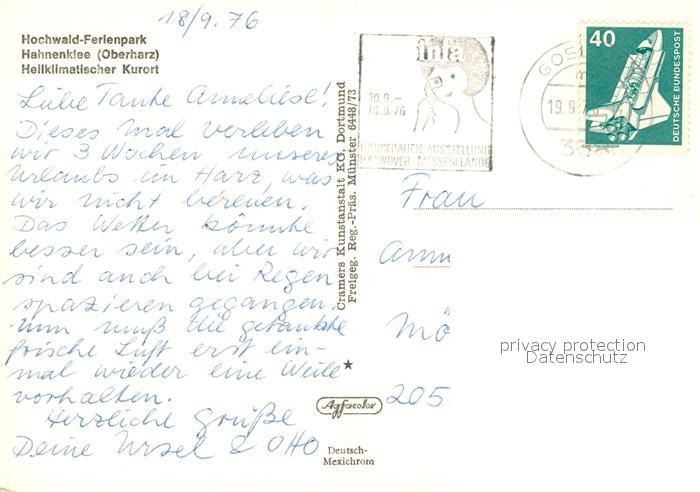 18/9. 76
Hochwald-Ferienpark
Hahnenklee (Oberharz)
Heilklimatischer Kurort
Liebe Tante Anneliese!
Dieses mal verleben
wir 3 Wochen unseres
Urlaubs im Harz, was
wir nicht bereuen.
Das Wetter könnte
besser sein, aber wir
sind auch bei Regen
spazieren gegangen.
nun muß die getankte
frische Luft erst ein-
mal wieder eine Weile
vorhalten.
Herzliche Grüße
Deine Ursel & Otto
Cramers Kunstanstalt KG, Dortmund
Freigeg. Reg.-Präs. Münster 6448/73
Agfacolor
Deutsch-
Mexichrom
infa
10.9.–
19.9.76
HAUSFRAUEN-AUSSTELLUNG
HANNOVER-MESSEGELÄNDE
GOS
19.9
338
40
DEUTSCHE BUNDESPOST
Frau
Ann
Mö
205
privacy protection
Datenschutz